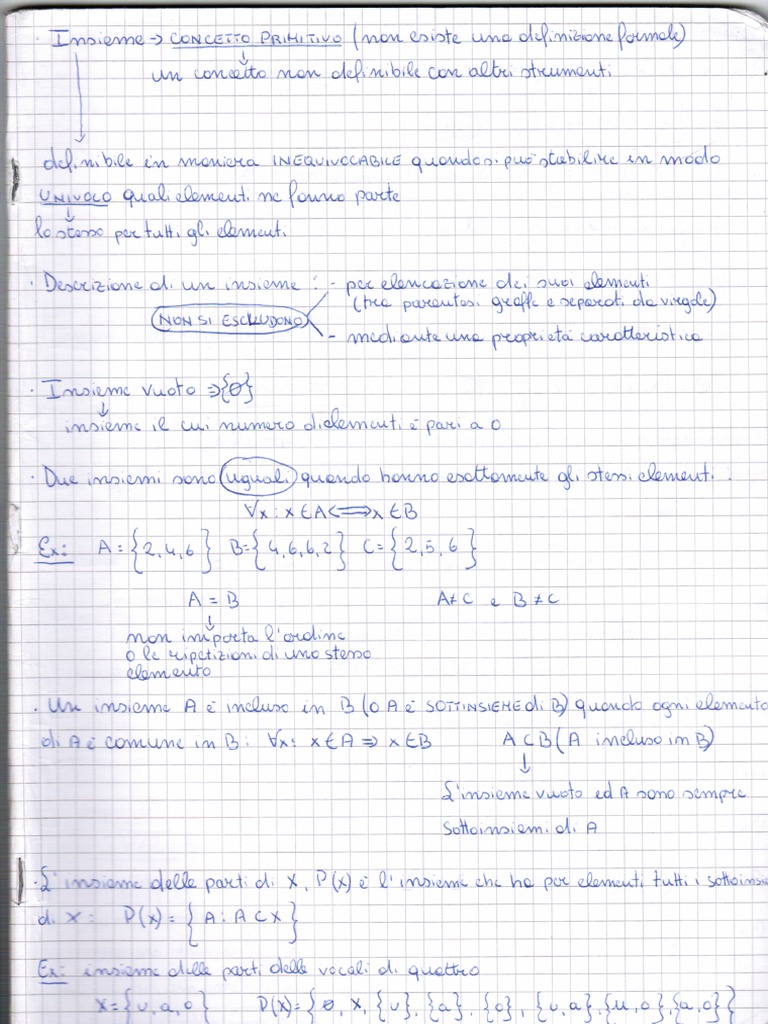 · Insieme → CONCETTO PRIMITIVO (non esiste una definizione formale)
↓
un concetto non definibile con altri strumenti
definibile in maniera INEQUIVOCABILE quando si può stabilire in modo
UNIVOCO quali elementi ne fanno parte
↓
lo stesso per tutti gli elementi
· Descrizione di un insieme : - per elencazione dei suoi elementi
(tra parentesi graffe e separati da virgole)
NON SI ESCLUDONO
- mediante una proprietà caratteristica
· Insieme vuoto ⇒ {∅}
↓
insieme il cui numero di elementi è pari a 0
· Due insiemi sono uguali quando hanno esattamente gli stessi elementi.
∀x : x ∈ A ⟺ x ∈ B
Ex: A = {2, 4, 6} B = {4, 6, 6, 2} C = {2, 5, 6}
A = B A ≠ C e B ≠ C
↓
non importa l'ordine
o le ripetizioni di uno stesso
elemento
· Un insieme A è incluso in B (o A è SOTTINSIEME di B) quando ogni elemento
di A è comune in B : ∀x : x ∈ A ⇒ x ∈ B A ⊂ B (A incluso in B)
↓
L'insieme vuoto ed A sono sempre
sottoinsiemi di A
· L'insieme delle parti di X, P(x) è l'insieme che ha per elementi tutti i sottoinsie
di X : P(x) = {A : A ⊂ X}
Ex: insieme delle parti delle vocali di quattro
X = {u, a, o} P(x) = {∅, X, {u}, {a}, {o}, {u, a}, {u, o}, {a, o}}